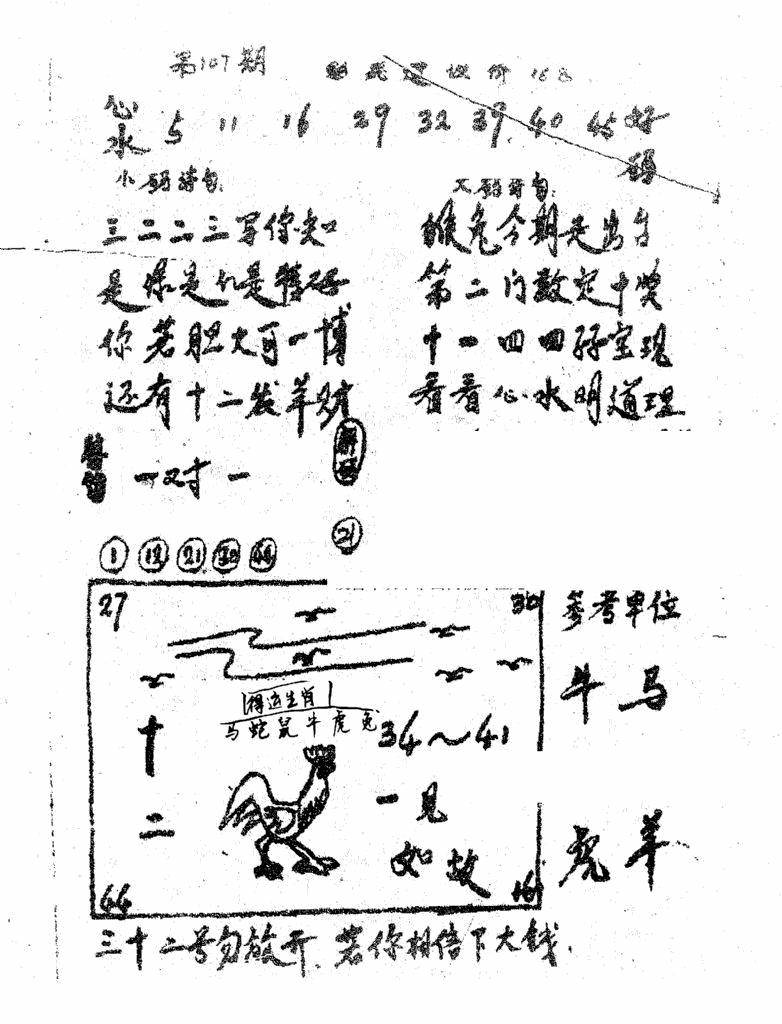 第107期
心水 5 11 16 29 32 39 40 45 好码
小码诗句:
大码诗句:
三二二三写你知
是你是们是特码
你若胆大可一博
还有十二发羊财
猴兔今期是出
第二门数定中奖
十一四四好宝现
看看心水明道理
一对一
21
1 12 21 30 44
27
30
参考单位
牛 马
得运生肖
马蛇鼠牛虎兔
34~41
十二
一见
如故
虎 羊
44
16
三十二号勿放开、若你相信下大钱.